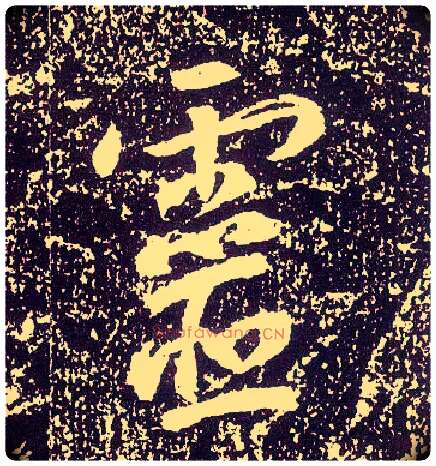 靈
Shufawang.CN